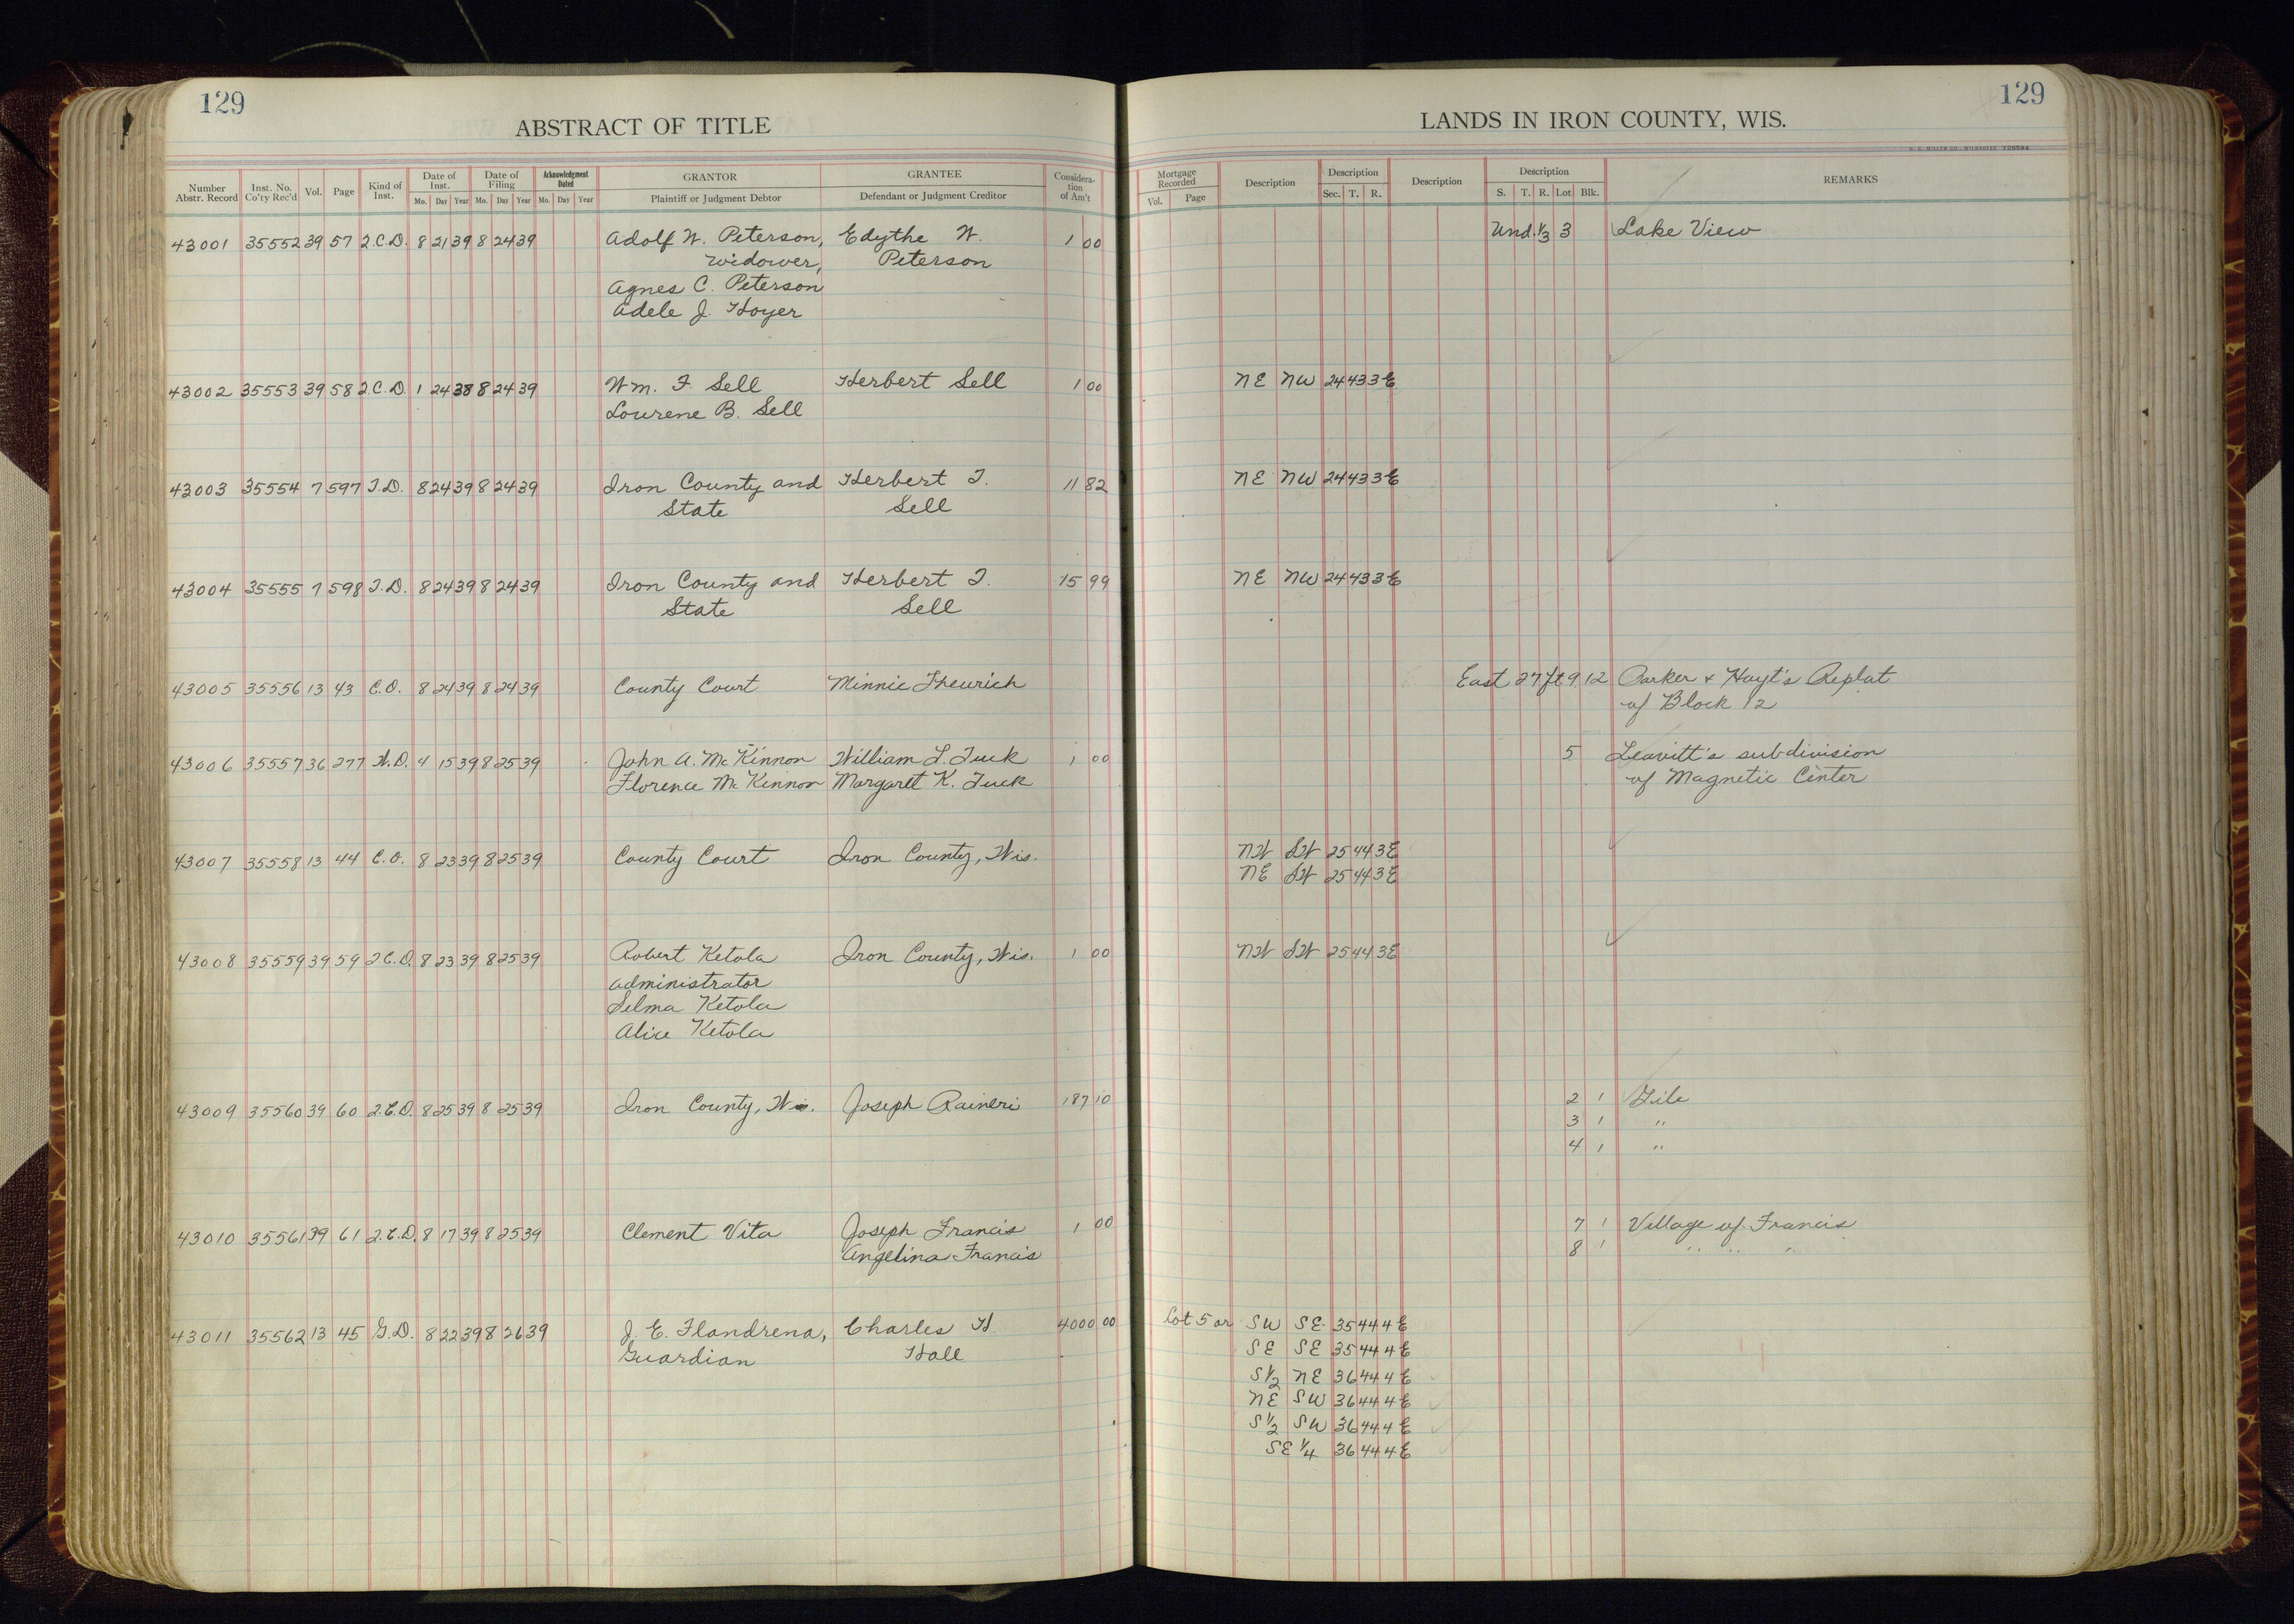 129
ABSTRACT OF TITLE
Number Abstr. Record | Inst. No. Co'ty Rec'd | Vol. | Page | Kind of Inst. | Date of Inst. Mo. Day Year | Date of Filing Mo. Day Year | Acknowledgment Dated Mo. Day Year | GRANTOR Plaintiff or Judgment Debtor | GRANTEE Defendant or Judgment Creditor | Consideration of Am't
43001 35552 39 57 2.C.D. 8 21 39 8 24 39 Adolf W. Peterson, Edythe W. 1 00
widower, Peterson
Agnes C. Peterson
Adele J. Hoyer
43002 35553 39 58 2.C.D. 1 24 38 8 24 39 Wm. F. Sell Herbert Sell 1 00
Lourene B. Sell
43003 35554 7 597 T.D. 8 24 39 8 24 39 Iron County and Herbert F. 11 82
State Sell
43004 35555 7 598 T.D. 8 24 39 8 24 39 Iron County and Herbert F. 15 99
State Sell
43005 35556 13 43 C.O. 8 24 39 8 24 39 County Court Minnie Theurich
43006 35557 36 277 W.D. 4 15 39 8 25 39 John A. McKinnon William L. Tuck 1 00
Florence McKinnon Margaret K. Tuck
43007 35558 13 44 C.O. 8 23 39 8 25 39 County Court Iron County, Wis.
43008 35559 39 59 2.C.D. 8 23 39 8 25 39 Robert Ketola Iron County, Wis. 1 00
administrator
Selma Ketola
Alice Ketola
43009 35560 39 60 2.C.D. 8 25 39 8 25 39 Iron County, Wis. Joseph Raineri 187 10
43010 35561 39 61 2.C.D. 8 17 39 8 25 39 Clement Vita Joseph Francis 1 00
Angelina Francis
43011 35562 13 45 G.D. 8 22 39 8 26 39 J. E. Flandrena, Charles H. 4000 00
Guardian Hall
129
LANDS IN IRON COUNTY, WIS.
Mortgage Recorded Vol. Page | Description | Description Sec. T. R. | Description | Description S. T. R. Lot Blk. | REMARKS
Und. 1/3 3 Lake View
NE NW 24 43 3E
NE NW 24 43 3E
NE NW 24 43 3E
East 27 ft 9 12 Parker & Hoyt's Replat
of Block 12
5 Leavitt's subdivision
of Magnetic Center
NW SW 25 44 3E
NE SW 25 44 3E
NW SW 25 44 3E
2 1 Gile
3 1 "
4 1 "
7 1 Village of Francis
8 1 " " "
Lot 5 or SW SE 35 44 4E
SE SE 35 44 4E
S1/2 NE 36 44 4E
NE SW 36 44 4E
S1/2 SW 36 44 4E
SE 1/4 36 44 4E